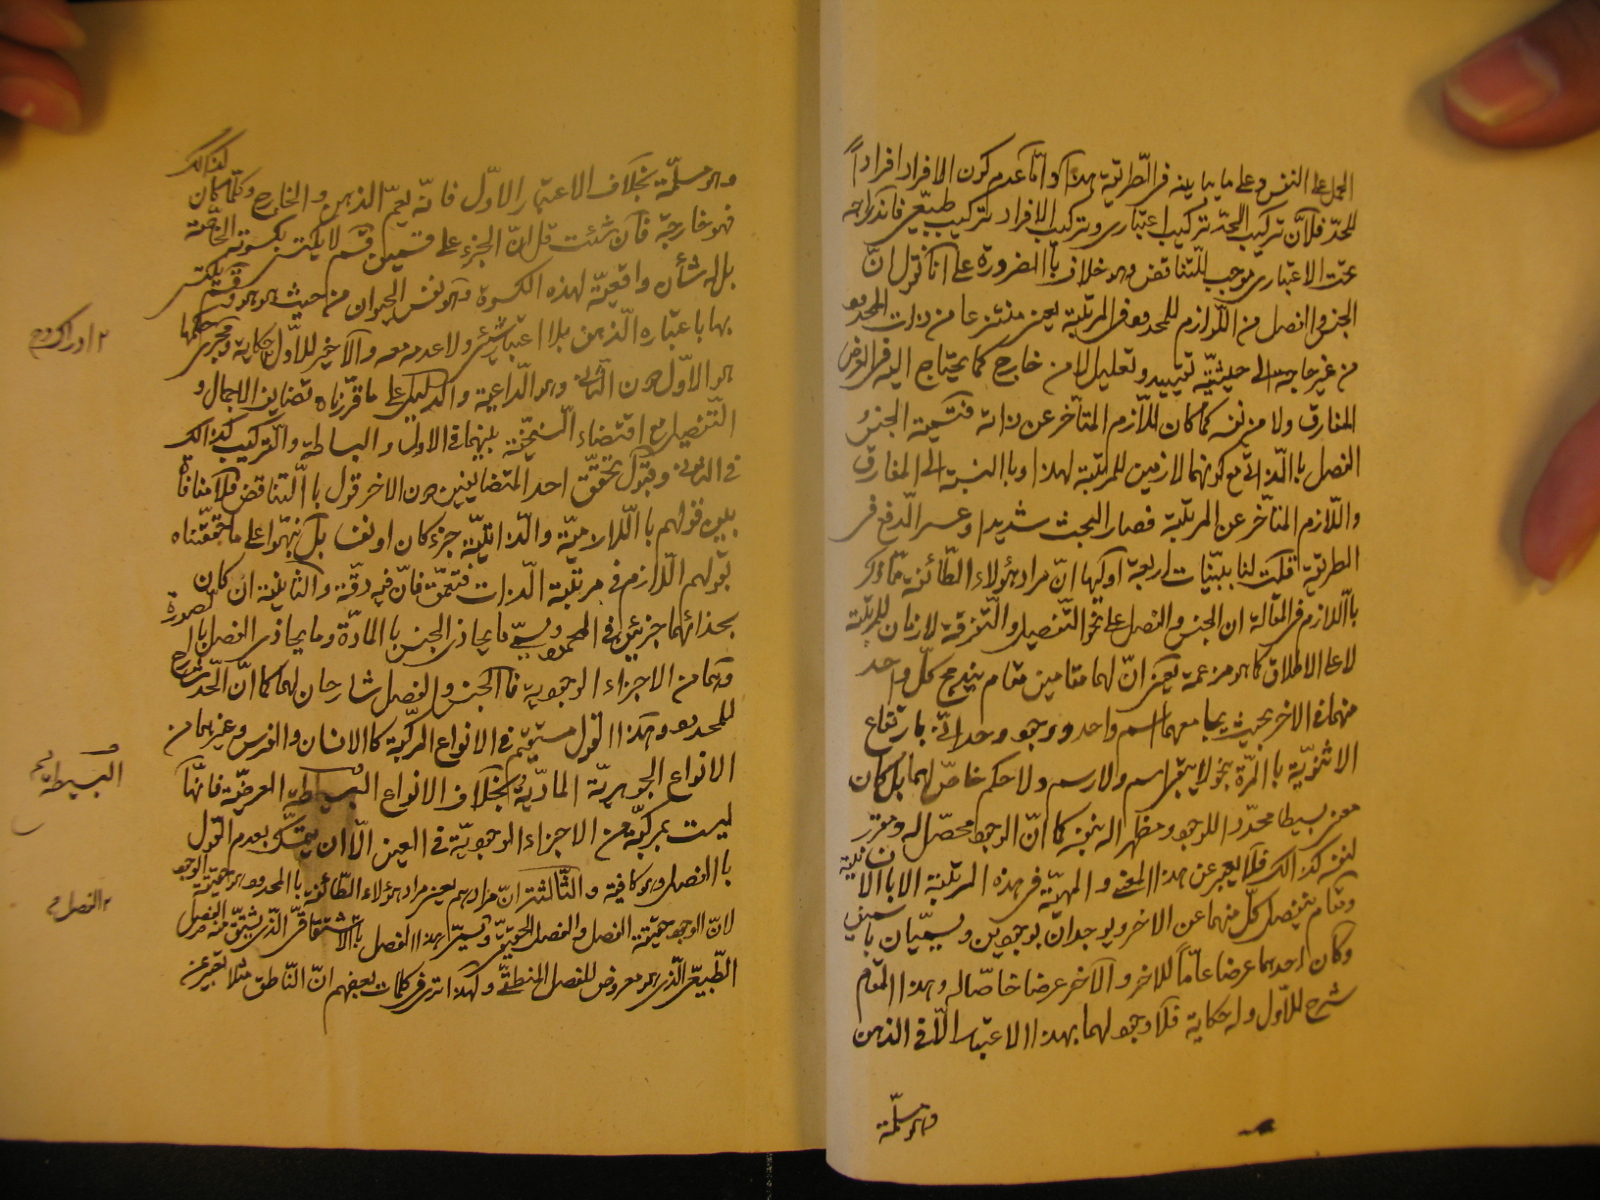 الحمل على النفس وعلى ما يباينه في الطريقة هذا واما عدم كون الافراد افراداً
للحد فلان تركيب الحد تركيب اعتباري وتركيب الافراد تركيب طبيعي فاندراجه
تحت الاعتباري موجب للتناقض وهو خلاف بالضرورة على انا نقول ان
الجنس والفصل من اللوازم للمحدود في المرتبة يعني منتزعا من ذات المحدود
من غير حاجة الى حيثية تقييد وتعليل لا من خارج كما يحتاج اليه في العرض
المفارق ولا من نفسه كما كان اللازم المتأخر عن ذاته فتسمية الجنس و
الفصل بالذاتي مع كونهما لازمين للمرتبة لهذا وبالنسبة الى المفارق
واللازم المتأخر عن المرتبة فصار البحث شديدا وعسر الدفع في
الطريقة قلت لنا بينات اربعة اولها ان مراد هؤلاء الطائفة مما ذكر
باللازم في المقالة ان الجنس والفصل على نحو التفصيل والتفرقة لازمان للمرتبة
لا على الاطلاق كما هو مزعمه يعني ان لهما مقامين مقام يندمج كل واحد
منهما في الاخر بحيث يجامعهما اسم واحد ووجود وحداني بارتفاع
الاثنوية بالمرة بنحو لا يبقى اسم ولا رسم ولا حكم خاص لهما بل كان
معنى بسيطا محدد اللوجود ومظهر اله بنفسه كما ان الوجود محصل له ومقرر
لنفسه كذالك فلا يعبر عن هذا المعنى والمهية في هذه المرتبة الا بالانسانية
ومقام ينفصل كل منهما عن الاخر ويوجدان بوجودين ويسميان باسمين
وكان احدهما عرضا عاما للاخر والآخر عرضا خاصا له وهذا المقام
شرح للاول وله حكاية فلا وجود لهما بهذا الاعتبار الا في الذهن
وهو مسلمة
وهو مسلمة بخلاف الاعتبار الاول فانه يعم الذهن والخارج وكلما كان كذالك
فهو خارجية فان شئت قل ان الجزء على قسمين قسم لا يكتسي بكسوته الخاصة
بل له شأن واقعية لهذه الكسوة وهو نفس الحيوان من حيث هو هو وقسم يكتسي
بها باعتباره الذهن بلا اعتبار شيئ ولا عدمه معه والآخير للاول حكاية ومجرى حكمها
هو الاول دون الثاني وهو الداعية والدليل على ما قررناه تضاين الاجمال و
التفصيل مع اقتضاء السنخية بينهما في الاول والبساطة والتركيب كذالك
في الثاني وقبول تحقق احد المتضايفين دون الاخر قول بالتناقض فلا منافاة
بين قولهم باللازمية والذاتية جزء كان او نفسا بل نبهوا على ما حققناه
بقولهم اللازم في مرتبة الذات فتعمق فان فيه دقة والثانية ان كان
بحذائهما جزئين في المحدود ويسمى ما يحاذى الجنس بالمادة وما يحاذى الفصل بالصورة
وهما من الاجزاء الوجودية فالجنس والفصل شارحان لهما كما ان الحد شرح
للمحدود وهذا القول مستقيم في الانواع المركبة كالانسان والفرس وغيرهما من
الانواع الجوهرية المادية بخلاف الانواع البسيطة العرضية فانها
ليست بمركبة من الاجزاء الوجودية في العين الا ان يتمسك بعدم القول
بالفصل وهو كافية والثالثة ان مرادهم يعني مراد هؤلاء الطائفة بالمحدود هو حقيقة الوجود
لان الوجود حقيقة الفصل والفصل الحقيقي ويسمى هذا الفصل بالاشتقاقي الذي يشتق منه الفصل
الطبيعي الذي هو معروض للفصل المنطقي ولهذا ترى في كلمات بعضهم ان الناطق مثلا تعبير عن
٢ ادراكه م
البسيطة
٢ الفصل م